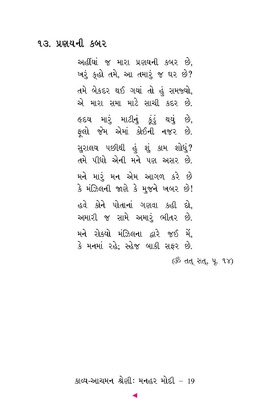 ૧૩. પ્રણયની કબર
અહીંયાં જ મારા પ્રણયની કબર છે,
ખરું કહો તમે, આ તમારું જ ઘર છે?
તમે બેકદર થઈ ગયાં તો હું સમજ્યો,
એ મારા સમા માટે સાચી કદર છે.
હૃદય મારું માટીનું કૂંડું થયું છે,
ફૂલો જેમ એમાં કોઈની નજર છે.
સુરાલય પછીથી હું શું કામ શોધું?
તમે પીધો એની મને પણ અસર છે.
મને મારું મન એમ આગળ કરે છે
કે મંઝિલની જાણે કે મુજને ખબર છે!
હવે કોને પોતાનાં ગણવા કહી દો,
અમારી જ સામે અમારું ભીતર છે.
મને રોક્યો મંઝિલના દ્વારે જઈ મેં,
કે મનમાં રહે; સ્હેજ બાકી સફર છે.
(ૐ તત્ સત્, પૃ. ૧૪)
કાવ્ય-આચમન શ્રેણી: મનહર મોદી – 19